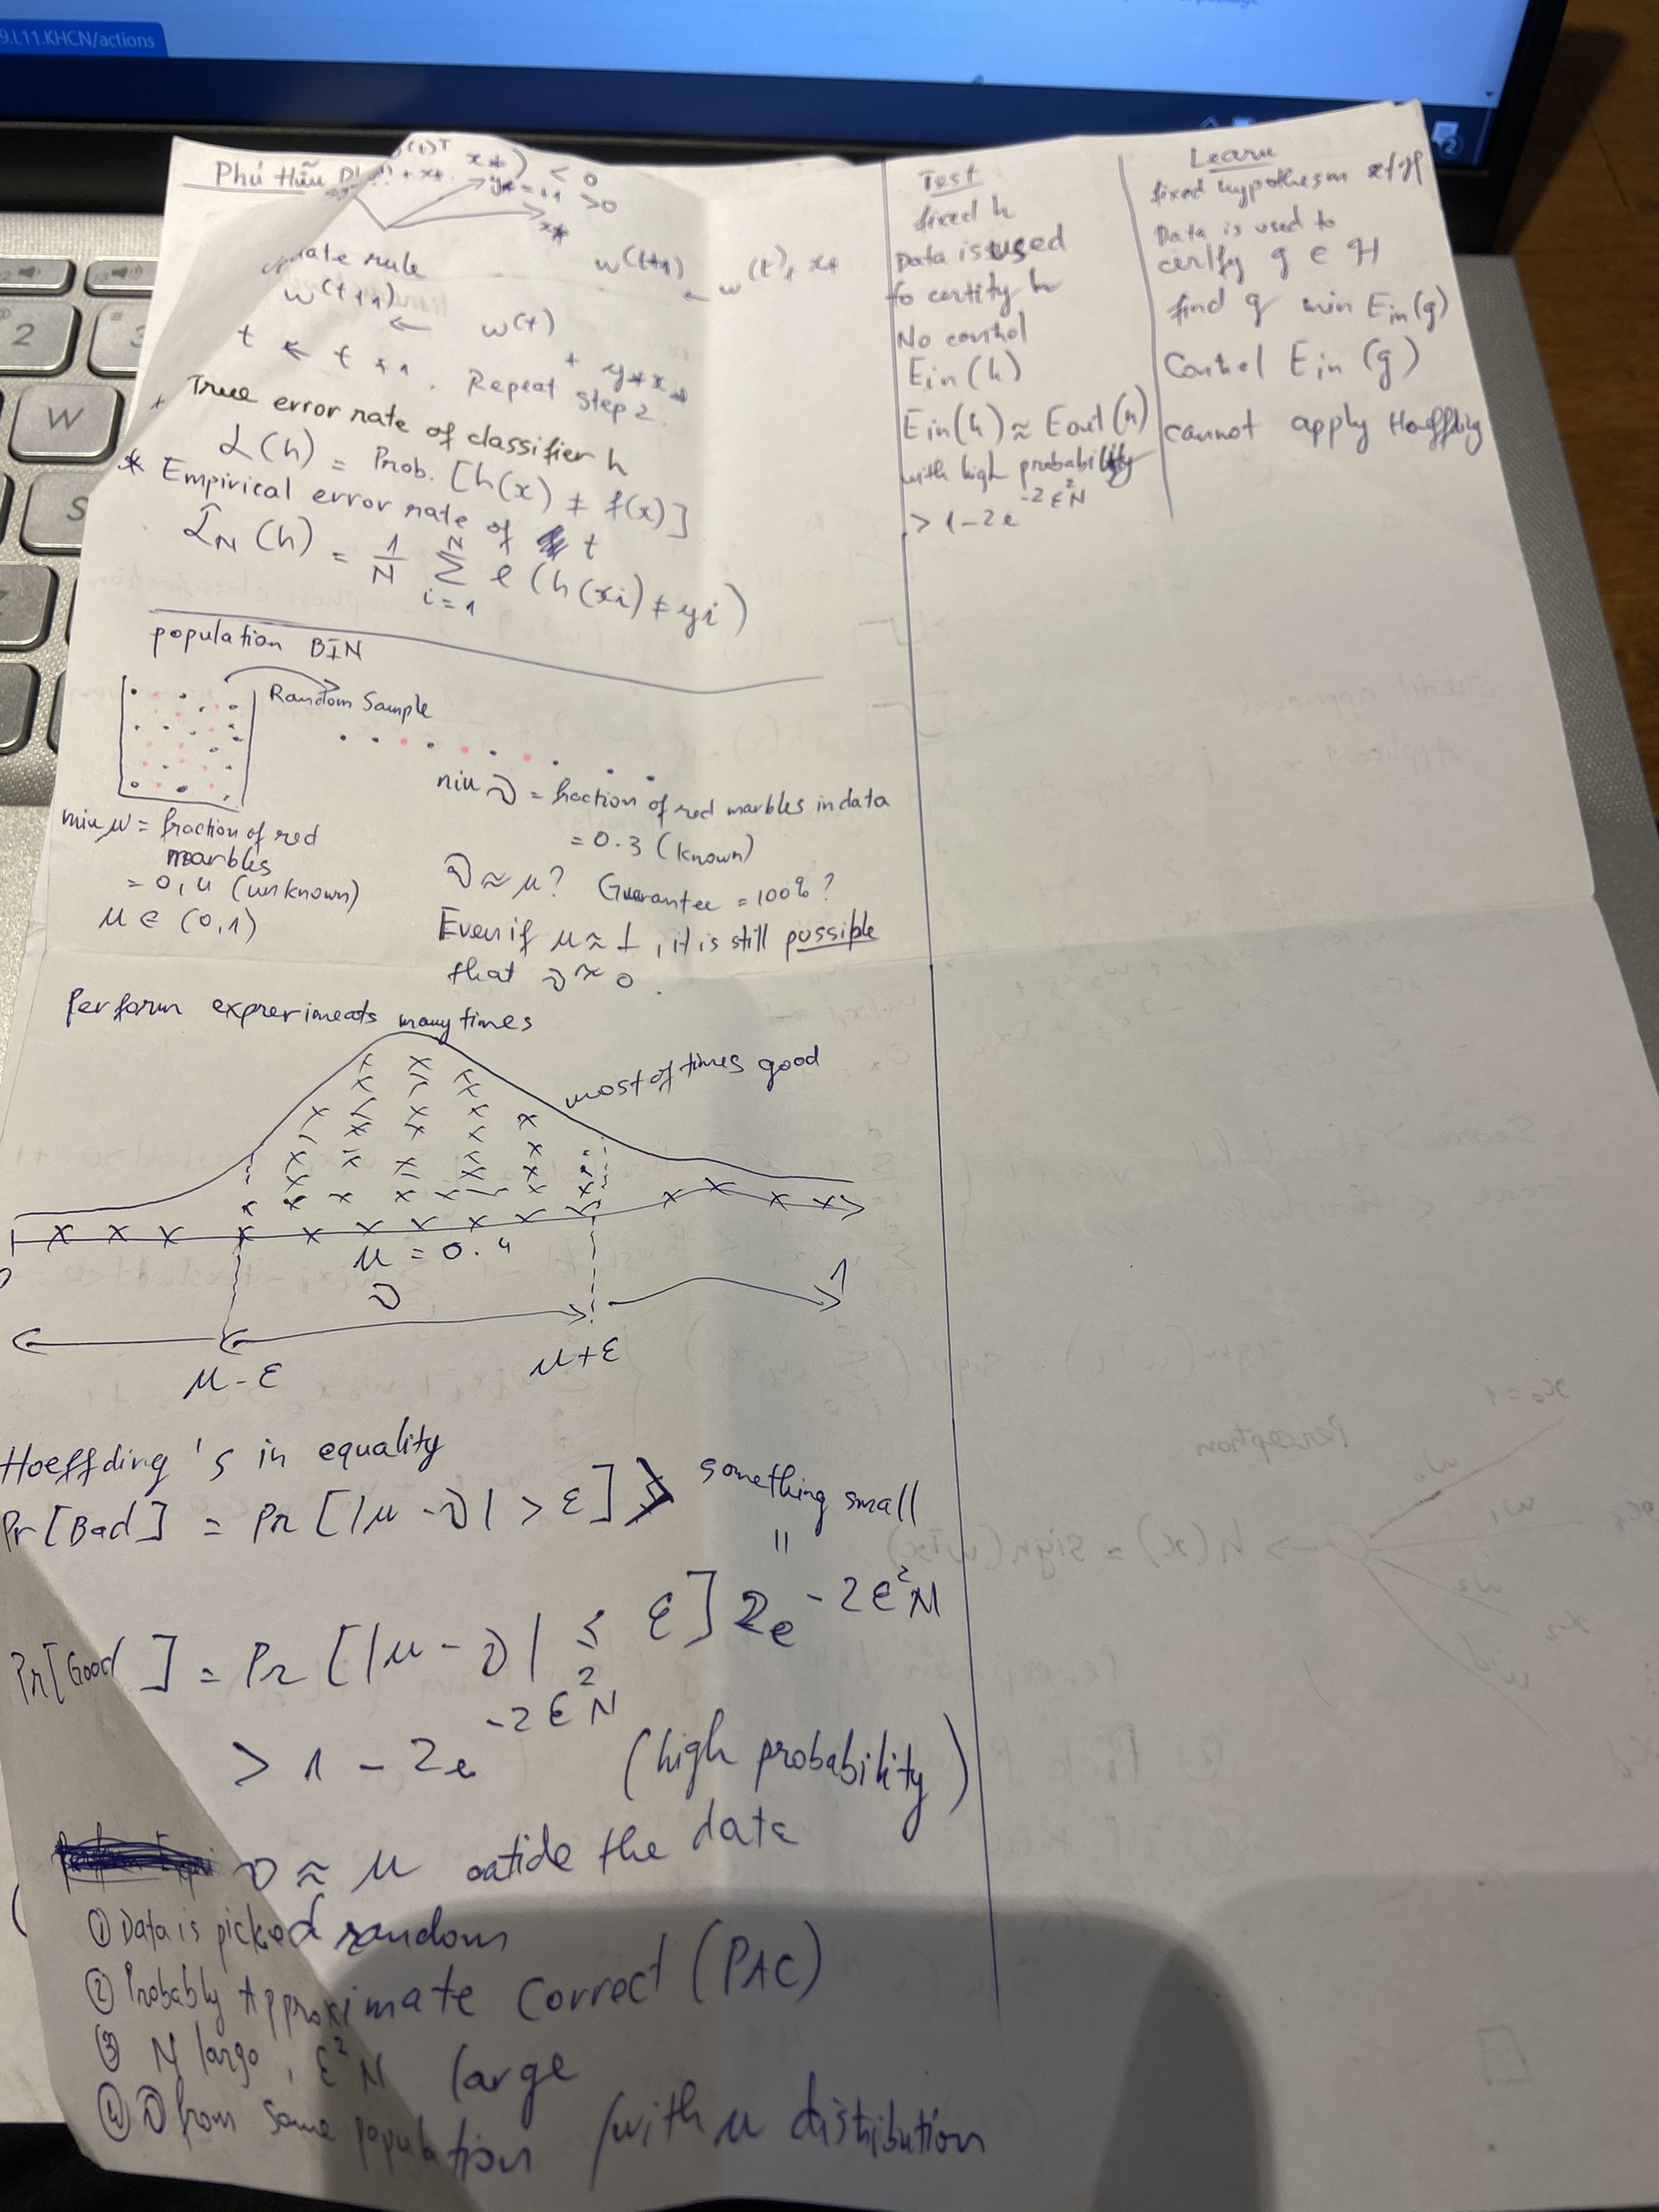 9.L11.KHCN/actions
Phú Hữu
(t)T x* ) < 0
+ x*. y* = +1 >0
x*
ate rule
w(t+1) ← w(t), x*
w(t+1) ← w(t) + y* x*
t ← t + 1. Repeat step 2.
+ True error rate of classifier h
L(h) = Prob. [h(x) ≠ f(x)]
* Empirical error rate of t
L̂N (h) = 1/N N Σ i=1 e (h(xi) ≠ yi)
population BIN
Random Sample
niu ν = fraction of red marbles in data
= 0.3 (known)
miu μ = fraction of red
marbles
= 0,4 (unknown)
μ ∈ (0,1)
ν ≈ μ? Guarantee = 100%?
Even if μ ≈ 1, it is still possible
that ν ≈ 0.
Perform exprerimeats many times
most of times good
μ = 0.4
0
ν
1
μ - ε
μ + ε
Hoeffding's in equality
Pr [Bad] = Pr [|μ - ν| > ε] ≯ something small
=
2e^-2ε²N
Pr[Good] = Pr [|μ - ν| ≤ ε]
> 1 - 2e^-2ε²N (high probability)
ν ≈ μ outide the data
① Data is picked random
② Probably Approximate Correct (PAC)
③ N large, ε²N large
④ ν from same population / with μ distribution
Test
fixed h
Data is used
to certity h
No control
Ein(h)
Ein(h) ≈ Eout(h)
with high probability
> 1-2e^-2ε²N
Learn
fixed hypothesis
Data is used to
certfy g ∈ H
find g min Ein(g)
Control Ein (g)
cannot apply Hoeffding
W
S
2
3